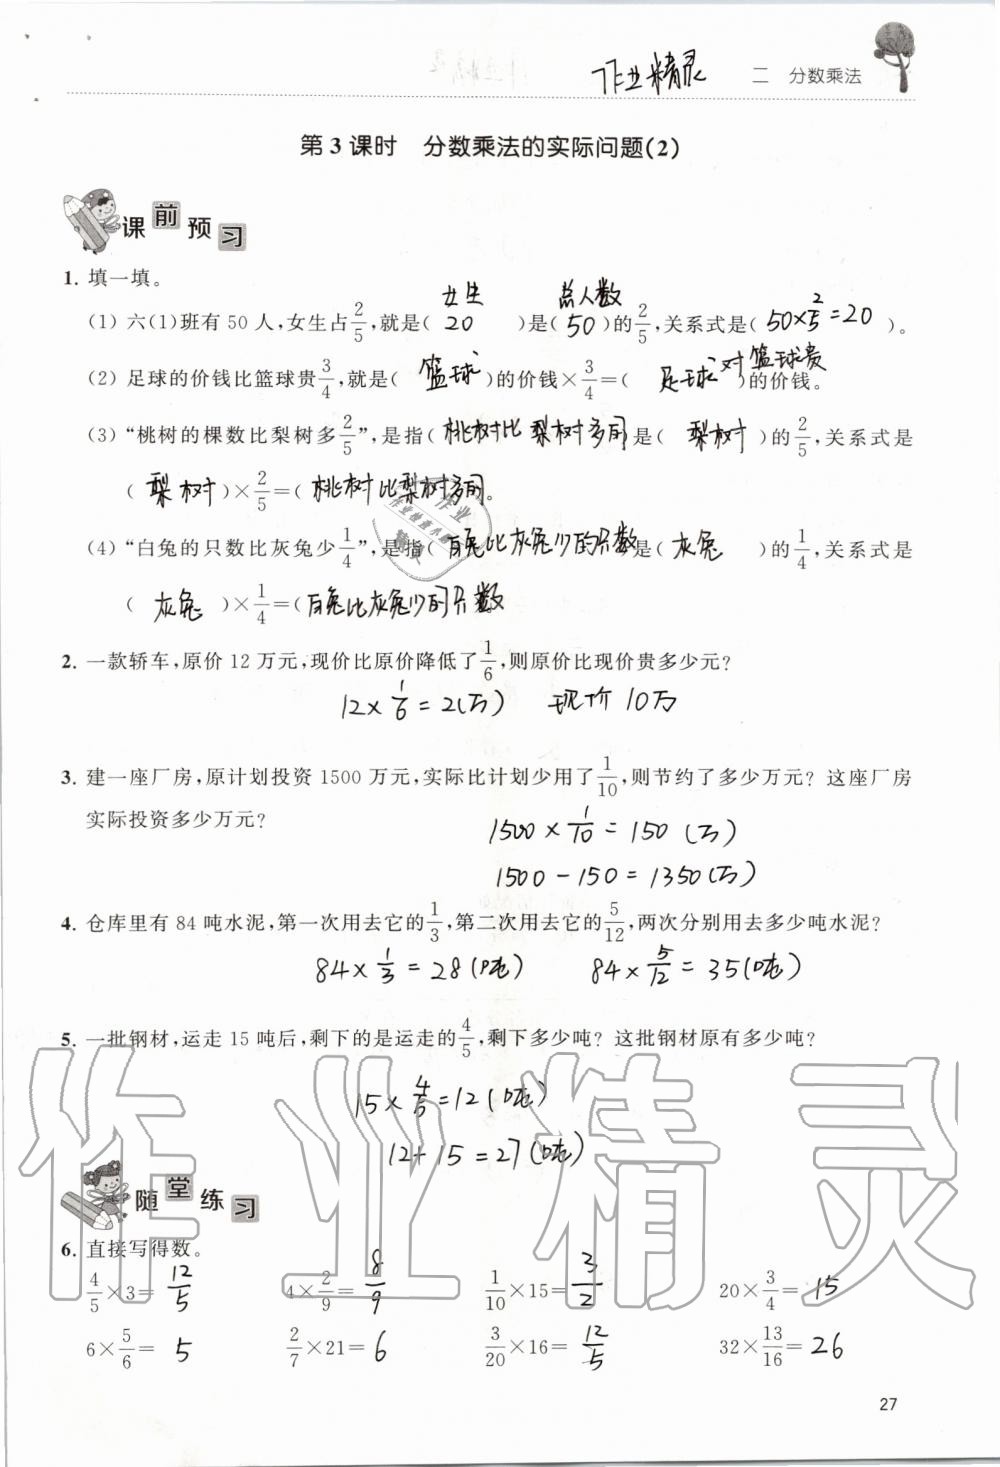 作业精灵 二 分数乘法
第 3 课时 分数乘法的实际问题(2)
课前预习
1. 填一填。
女生 总人数
(1) 六(1)班有 50 人,女生占2/5,就是( 20 )是( 50 )的2/5,关系式是( 50×2/5=20 )。
(2) 足球的价钱比篮球贵3/4,就是( 篮球 )的价钱×3/4=( 足球对篮球贵 )的价钱。
(3) “桃树的棵数比梨树多2/5”,是指( 桃树比梨树多的 是( 梨树 )的2/5,关系式是
( 梨树 )×2/5=( 桃树比梨树多的 。
(4) “白兔的只数比灰兔少1/4”,是指( 白兔比灰兔少的分数 是( 灰兔 )的1/4,关系式是
( 灰兔 )×1/4=( 白兔比灰兔少的分数
2. 一款轿车,原价 12 万元,现价比原价降低了1/6,则原价比现价贵多少元?
12×1/6=2(万) 现价10万
3. 建一座厂房,原计划投资 1500 万元,实际比计划少用了1/10,则节约了多少万元? 这座厂房
实际投资多少万元?
1500×1/10=150(万)
1500-150=1350(万)
4. 仓库里有 84 吨水泥,第一次用去它的1/3,第二次用去它的5/12,两次分别用去多少吨水泥?
84×1/3=28(吨) 84×5/12=35(吨)
5. 一批钢材,运走 15 吨后,剩下的是运走的4/5,剩下多少吨? 这批钢材原有多少吨?
15×4/5=12(吨)
12+15=27(吨)
作业精灵
随堂练习
6. 直接写得数。
4/5×3=12/5 4×2/9=8/9 1/10×15=3/2 20×3/4=15
6×5/6=5 2/7×21=6 3/20×16=12/5 32×13/16=26
27